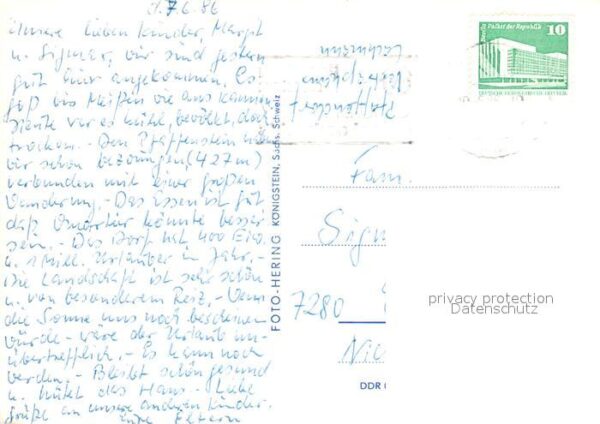 d. 7.6.86
Unsere lieben Kinder, Margit
u. Sigmar, wir sind gestern
gut hier angekommen. Es
goß bis Meißen wie aus Kannen
heute war es kühl, bewölkt, doch
trocken. - Den Pfaffenstein haben
wir schon bezwungen, (427 m)
verbunden mit einer großen
Wanderung. - Das Essen ist gut
das Quartier könnte besser
sein. - Das Dorf hat 400 Einw.
u. 1 Mill. Urlauber im Jahr. -
Die Landschaft ist sehr schön
u. von besonderem Reiz. - Wenn
die Sonne uns noch bescheinen
würde - wäre der Urlaub un-
übertrefflich. - Es kann noch
werden. - Bleibt schön gesund
u. hütet das Haus - Liebe
Grüße an unsere anderen Kinder.
Eure Eltern
Pfaffendorf
FOTO-HERING KÖNIGSTEIN, Sächs. Schweiz
Berlin Palast der Republik
10
DEUTSCHE DEMOKRATISCHE REPUBLIK
Fam.
Sigm
7280
Nie
privacy protection
Datenschutz
DDR